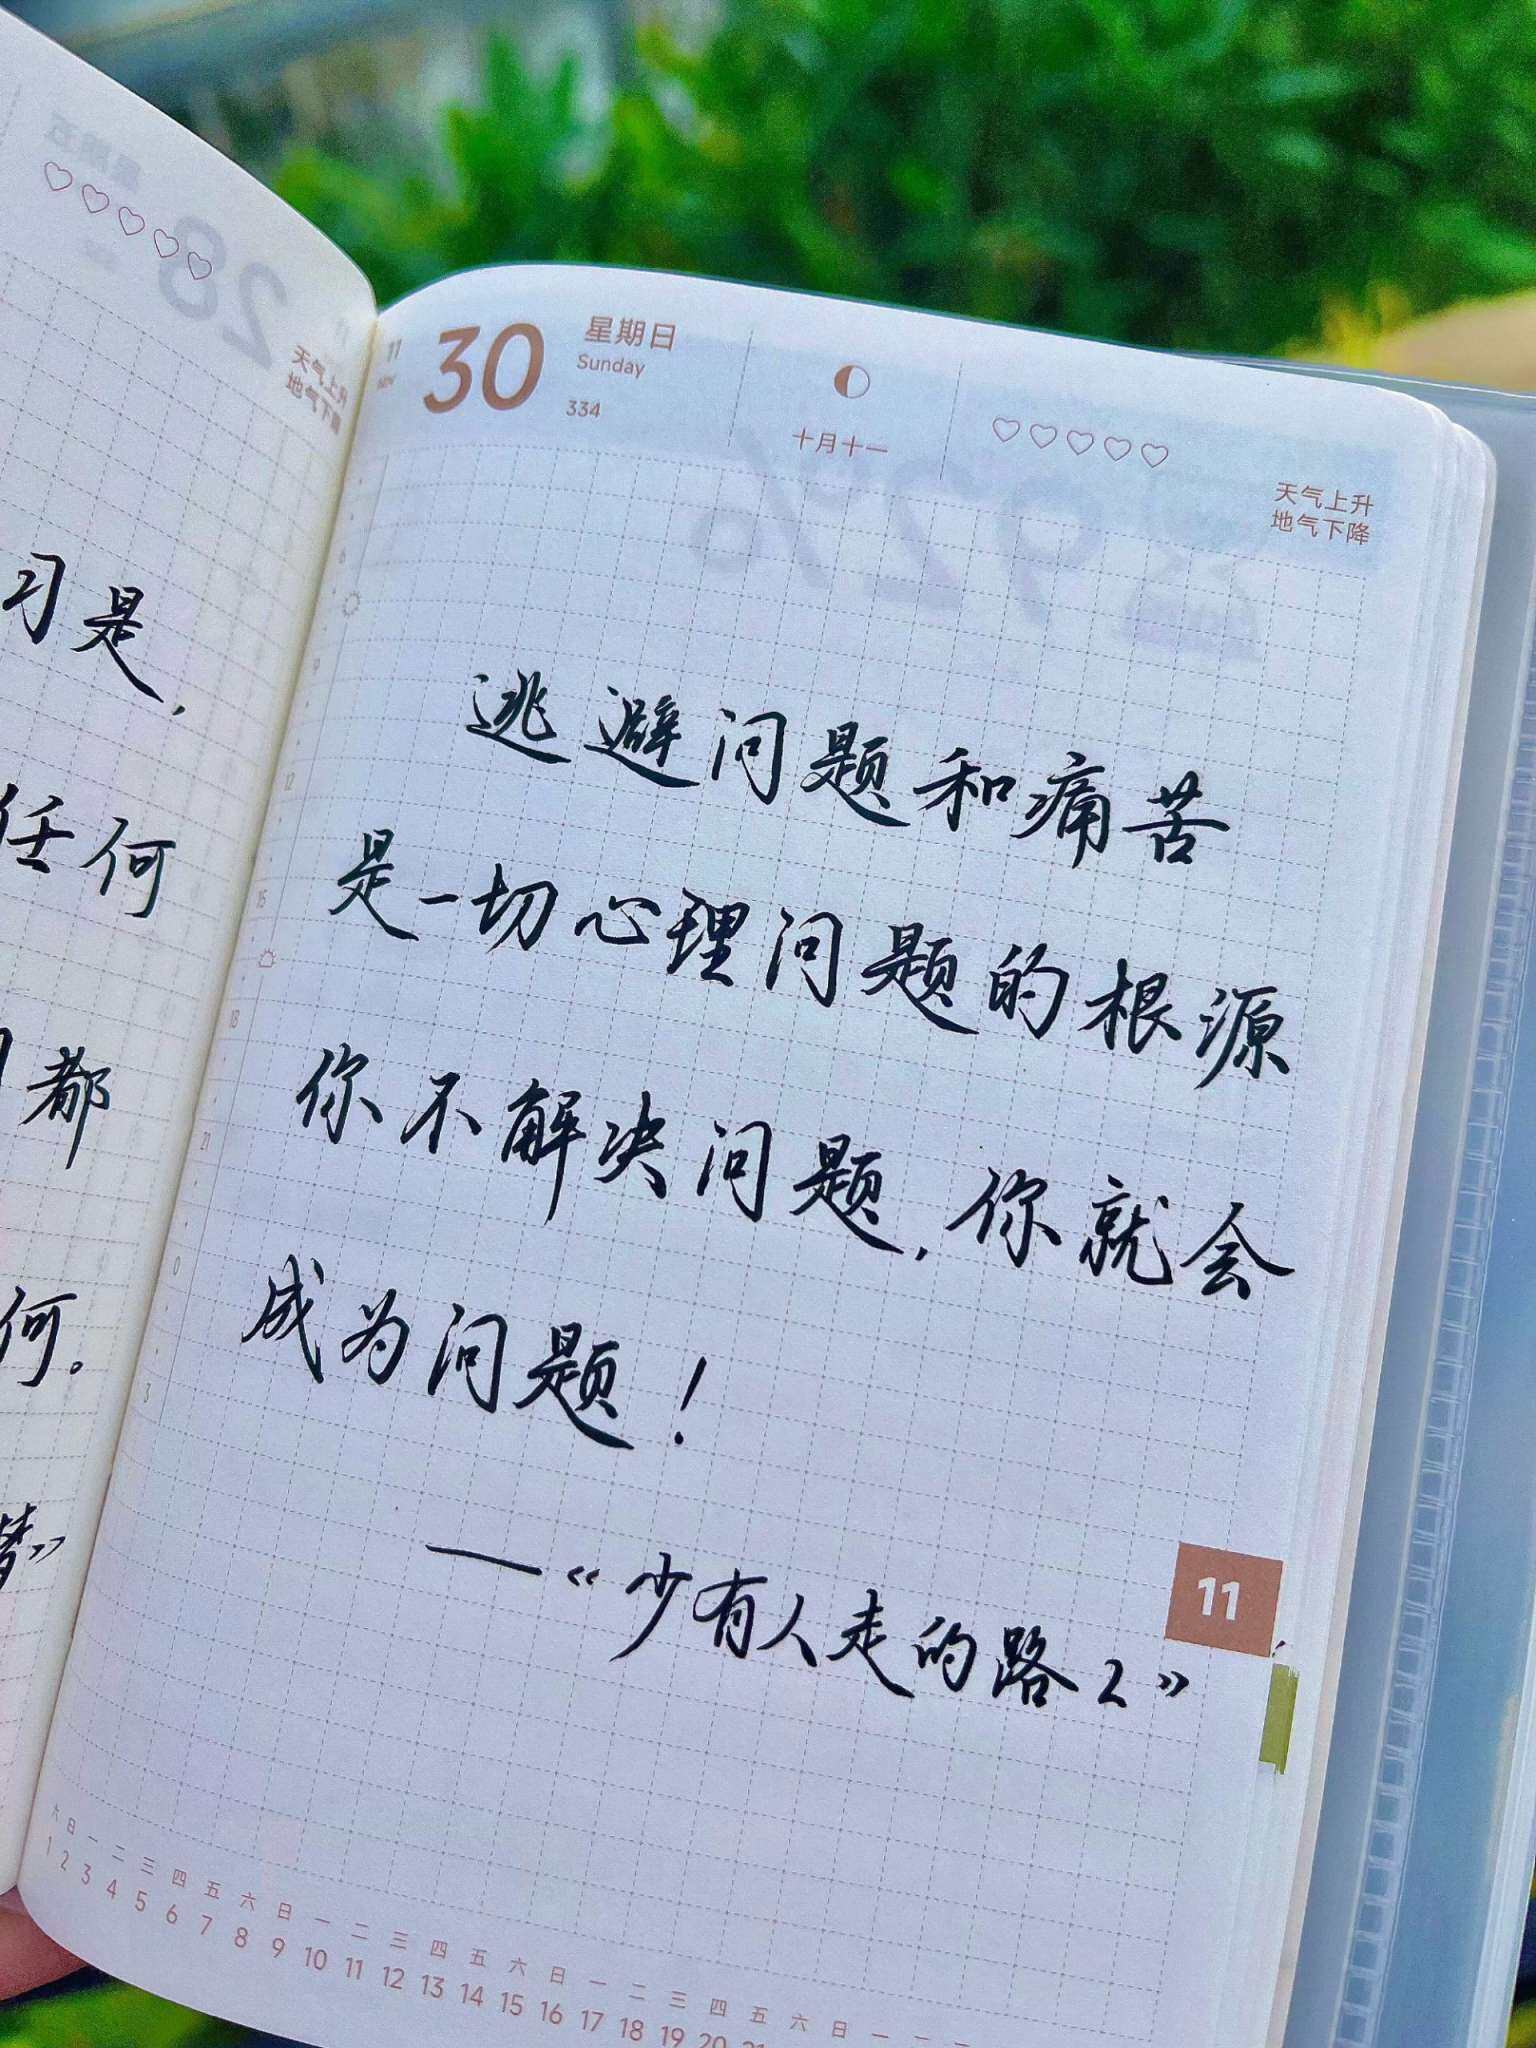 习是，
任何
都
何。
梦》
天气上升
地气下降
11
NOV
30
星期日
Sunday
334
十月十一
天气上升
地气下降
逃避问题和痛苦
是一切心理问题的根源
你不解决问题，你就会
成为问题！
——《少有人走的路2》
12
15
18
21
0
3
11
六 日 一 二 三 四 五 六 日 一 二 三 四 五 六 日 一 二 三 四 五 六 日 一 二 三
1 2 3 4 5 6 7 8 9 10 11 12 13 14 15 16 17 18 19 20 21